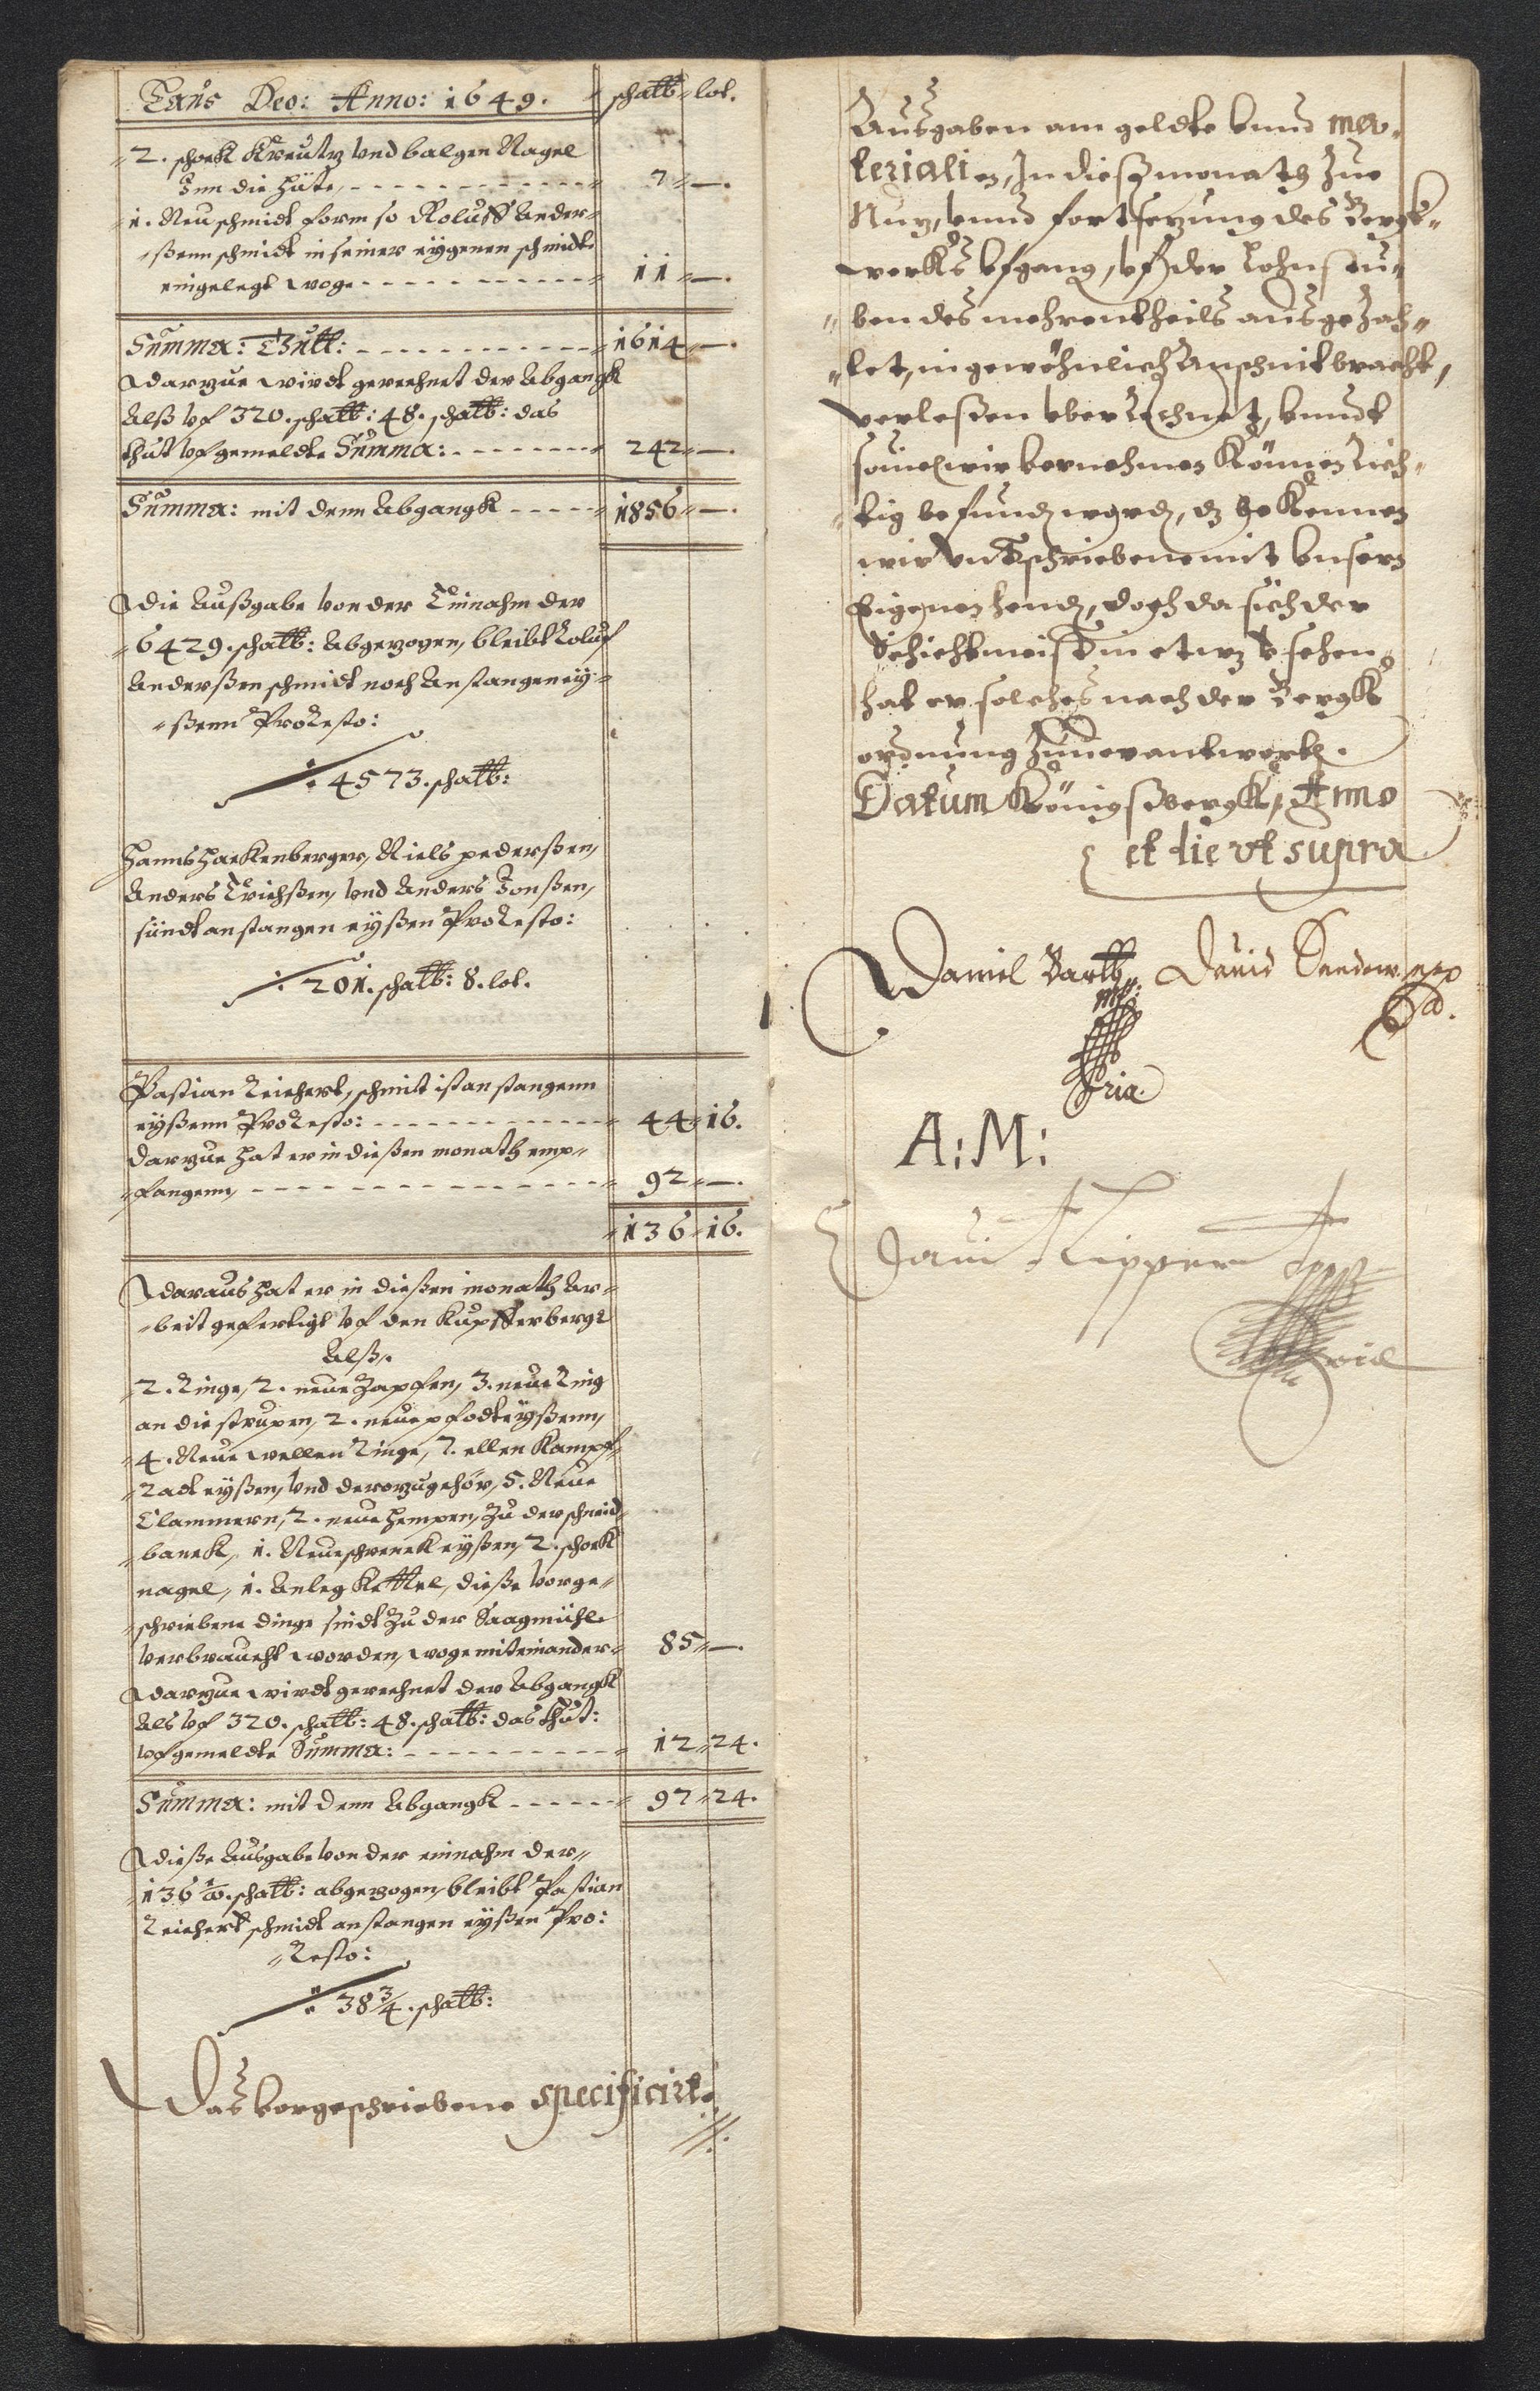 Laus Deo: Anno: 1649. schalb lot.
2. schock Kreutz und balgen Nagel
Inn die Hüte, 7 —.
1. Neu schmidt form so Roluff Ander=
ßenn schmidt in seiner eygenen schmidte
eingelegt woge 11 —.
Summa: 1614 —.
darzue wirdt gerechnet der Abgangk
Alß vf 320. schalb: 48. schalb: das
thut vf gemeldte Summa: 242 —.
Summa: mit denn Abgangk 1856 —.
die Außgabe von der Einnahm der
6429. schalb: Abgezogen, bleibt Roluf
Anderßen schmidt noch An stangen ey=
ßenn Pro Resto:
4573. schalb:
Hanns Hackenberger, Niels pederßen,
Anders Erichßen, vnd Anders Jonßen,
sündt an stangen eyßen Pro Resto:
201. schalb: 8. lot.
Pastian Reichert, schmit ist an stangenn
eyßenn Pro Resto: 44 16.
darzue hat er in dießen monath emp=
fangenn, 92 —.
136 16.
daraus hat er in dießen monath Ar=
beit gefertigt vf den Kupfferbergk
Alß.
2. Ringe, 2. neue Zapfen, 3. neue Ring
an die strupen, 2. neue pfodteyßenn,
4. Neue wellen Ringe, 7. ellen Kampf=
radt eyßen, vnd derozugehör, 5. Neue
Clammern, 2. neue Hempen, Zu der schneid=
banck, 1. Neue schwenck eyßen, 2. schock
nagel, 1. Anleg Kettel, dieße vorge=
schriebene dinge sindt Zu der Saagmühle
verbraucht worden, woge miteinander 85 —.
darzue wirdt gerechnet der Abgangk
Als vf 320. schalb: 48. schalb: das thut:
vf gemeldte Summa: 12 24.
Summa: mit denn Abgangk 97 24.
dieße Ausgabe von der einnahm der
136 schalb: abgezogen, bleibt Pastian
Reichert schmidt an stangen eyßen Pro:
Resto:
38 3/4. schalb:
Das vorgeschriebene specificirte
Ausgaben am geldte vnnd ma=
terialien, In dieß monath Zue
Nuz, vnnd fortsezung des Bergk=
werks vfgang, vf der Lohnstu=
ben des mehrentheils ausgezah=
let, in gewöhnlich Anschnit bracht,
verleßen vberRechnet, vnndt
souiel wir vernehmen Können Rich=
tig befunden worden, dz beKennen
wir Vntschriebene mit vnsern
Eigenen henden, doch da sich der
Schichtmeister in etwz versehen
hat er solches nach der Bergk
ordnung Zuuerantworten.
Datum Königsbergk, Anno
et die vt supra
Daniel Barth David
mp:
A: M: